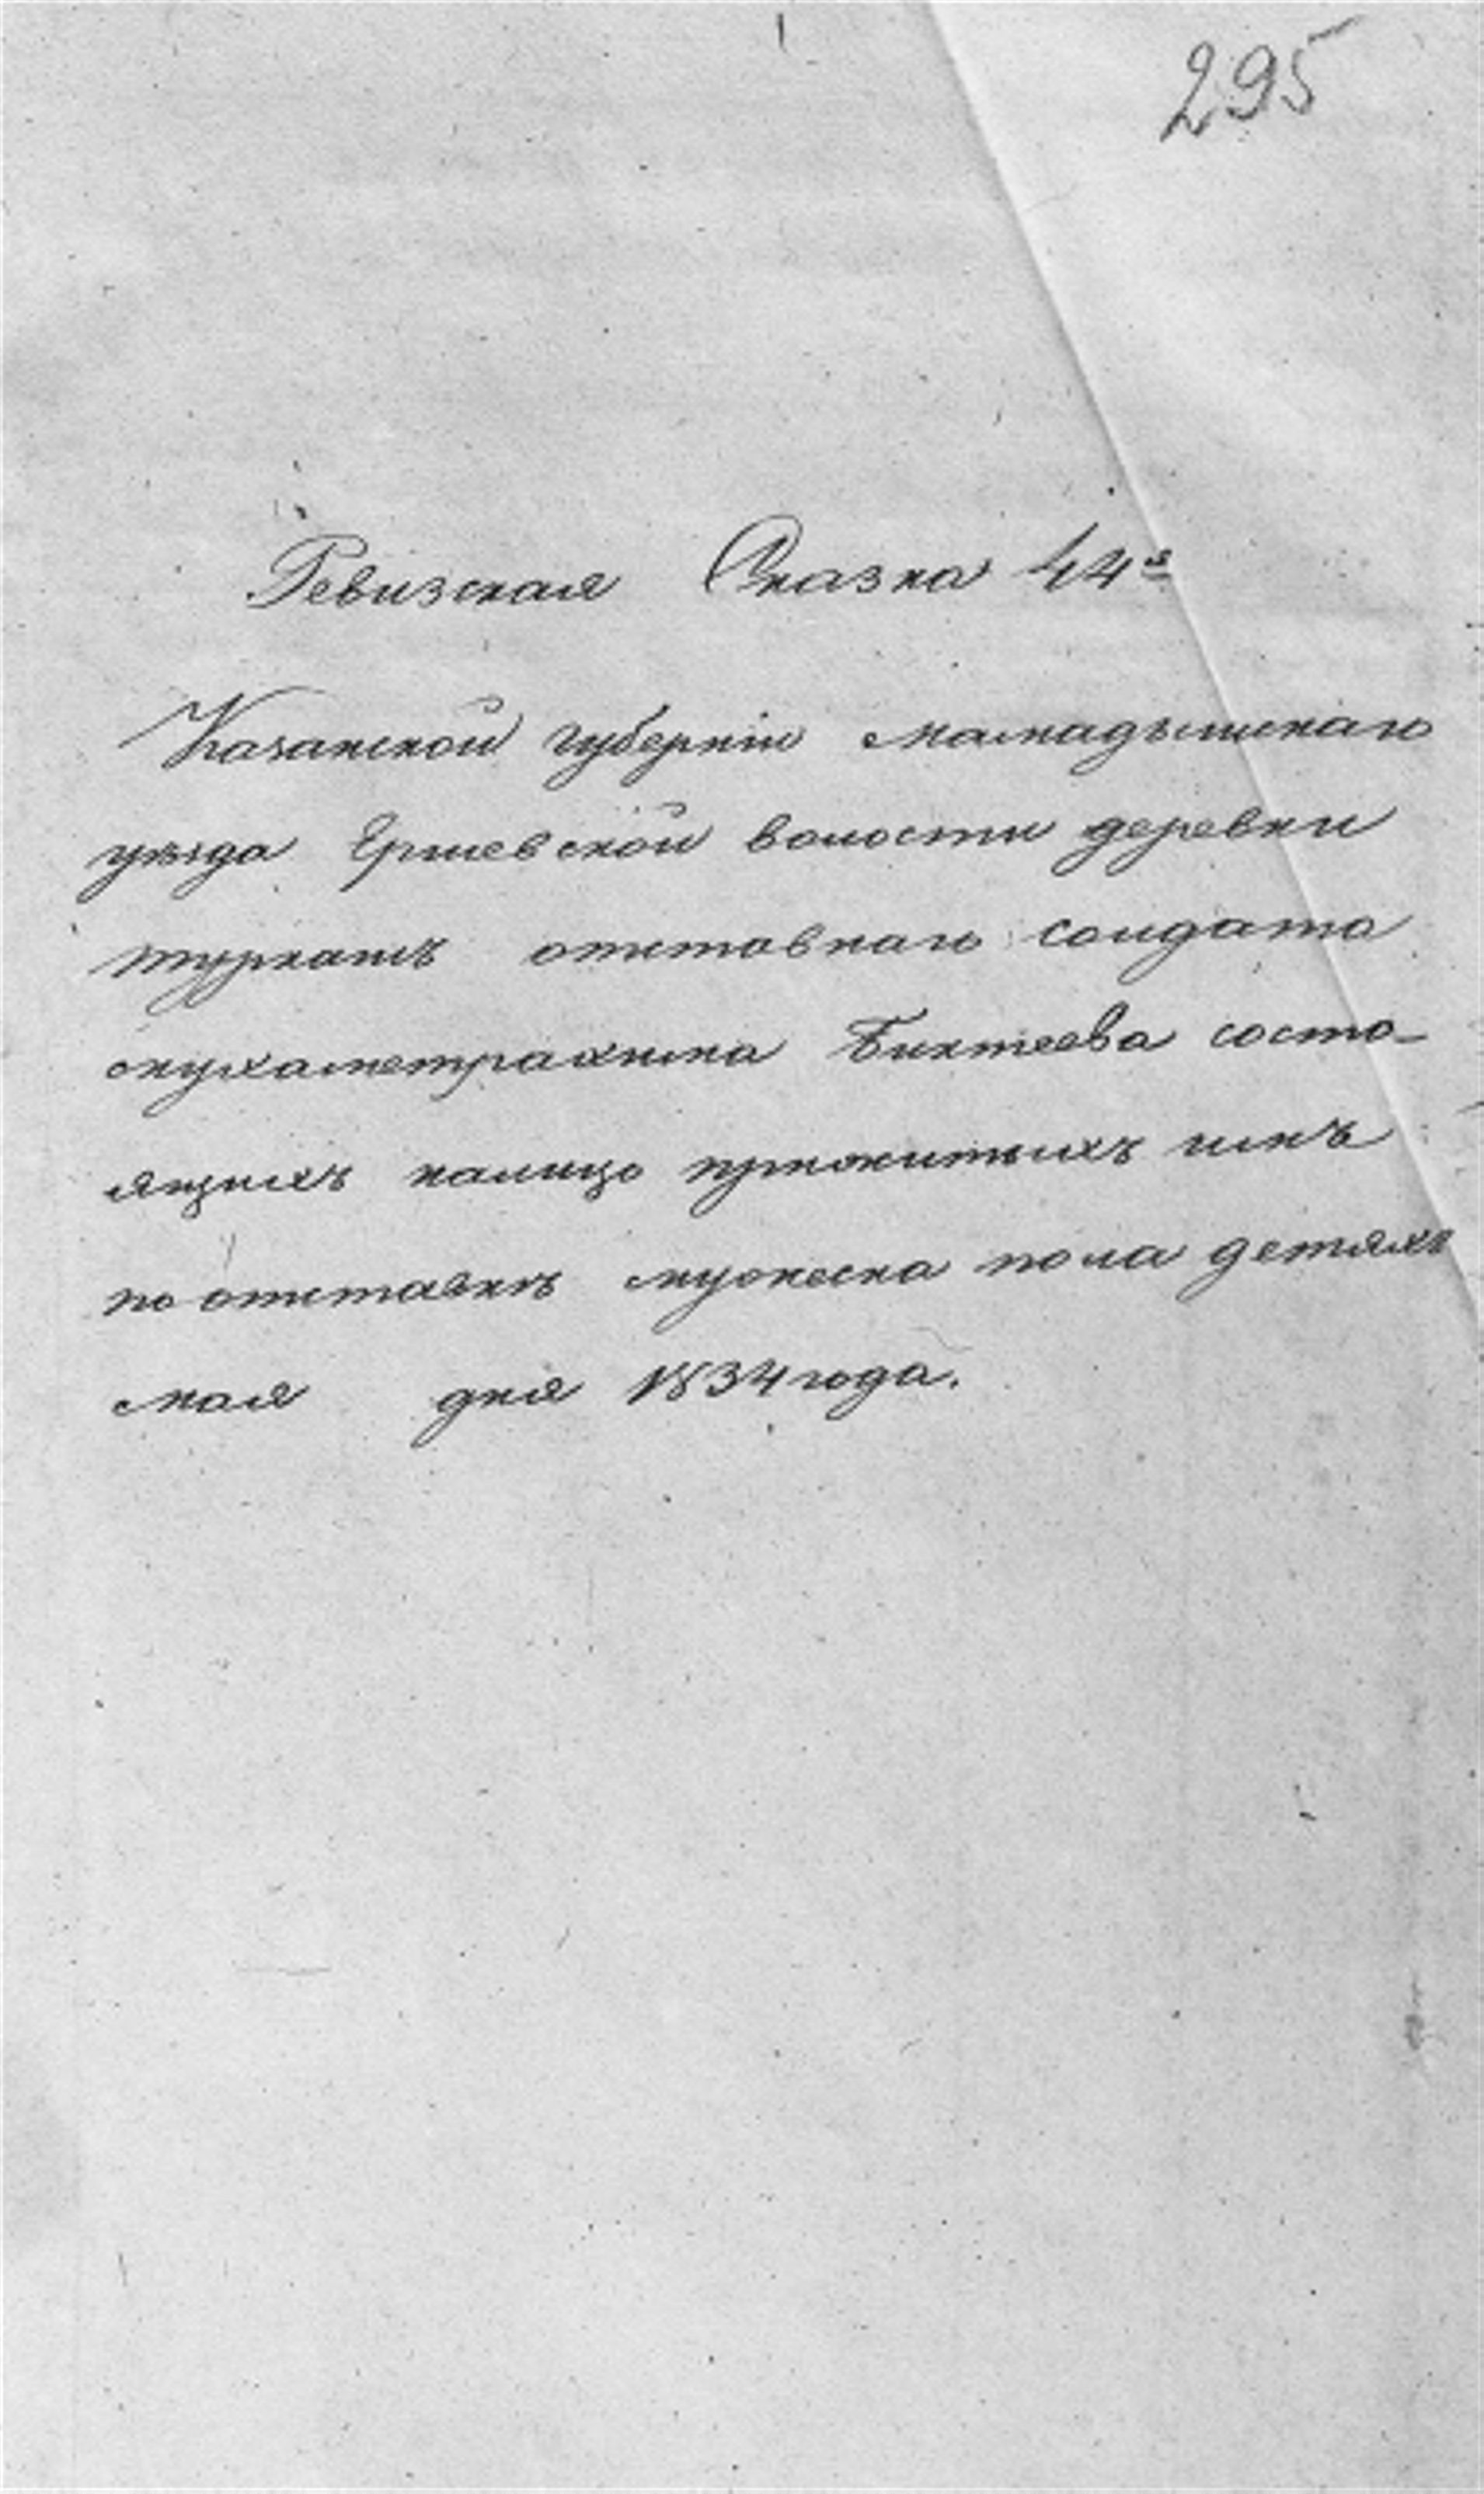 295
Ревизская Сказка 44я
Казанской губернiи мамадышскаго
уезда Ершевской волости деревни
туркашъ отставнаго солдата
мухаметрахима Биктеева состо-
ящихъ налицо прижитыхъ имъ
по отставке мужеска пола детяхъ
мая дня 1834 года.